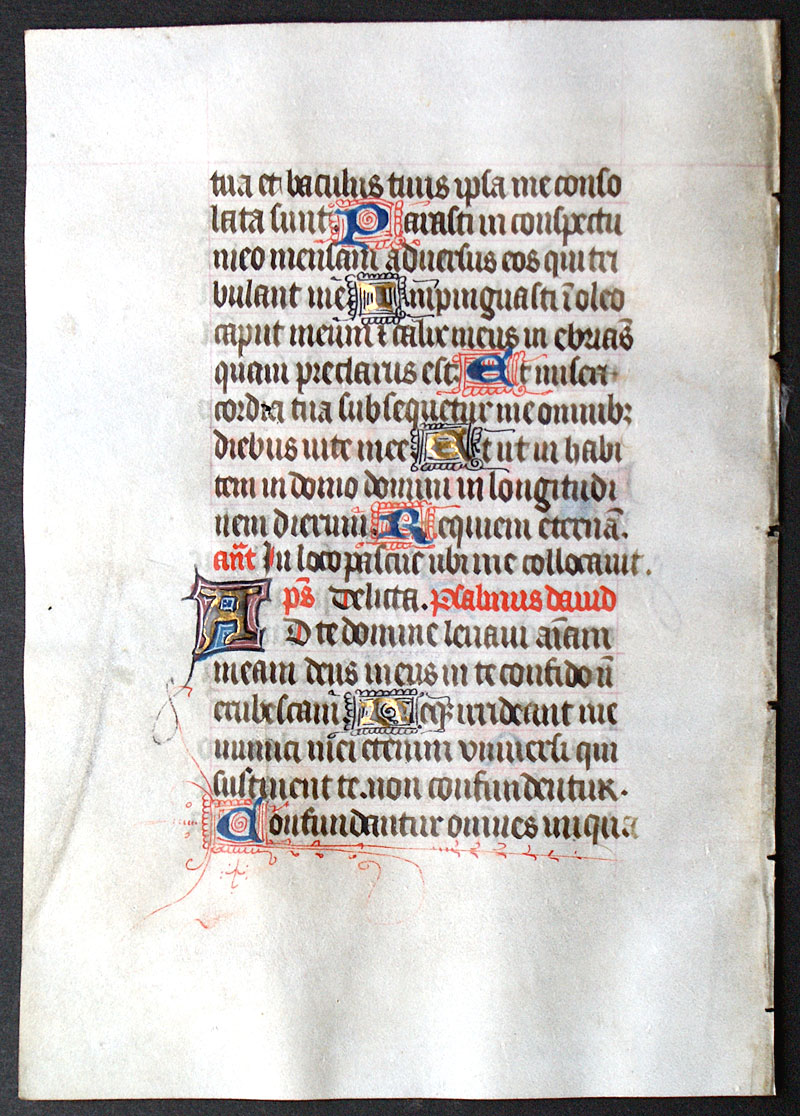 tua et baculus tuus ipsa me conso
lata sunt. Parasti in conspectu
meo mensam adversus eos qui tri
bulant me Inpinguasti ī oleo
caput meum ⁊ calix meus in ebriās
quam preclarus est. Et miseri
cordia tua subsequetur me omnibꝫ
diebus uite mee Et ut in habi
tem in domo domini in longitudi
nem dierum. Requiem eternā.
an̄t In loco pascue ubi me collocauit.
p̄s Delicta. Psalmus dauid
AD te domine leuaui aīam
meam deus meus in te confido nō
erubescam Neqꝫ irrideant me
inimici mei etenim vniuersi qui
sustinent te. non confundentur.
Confundantur omnes iniqua